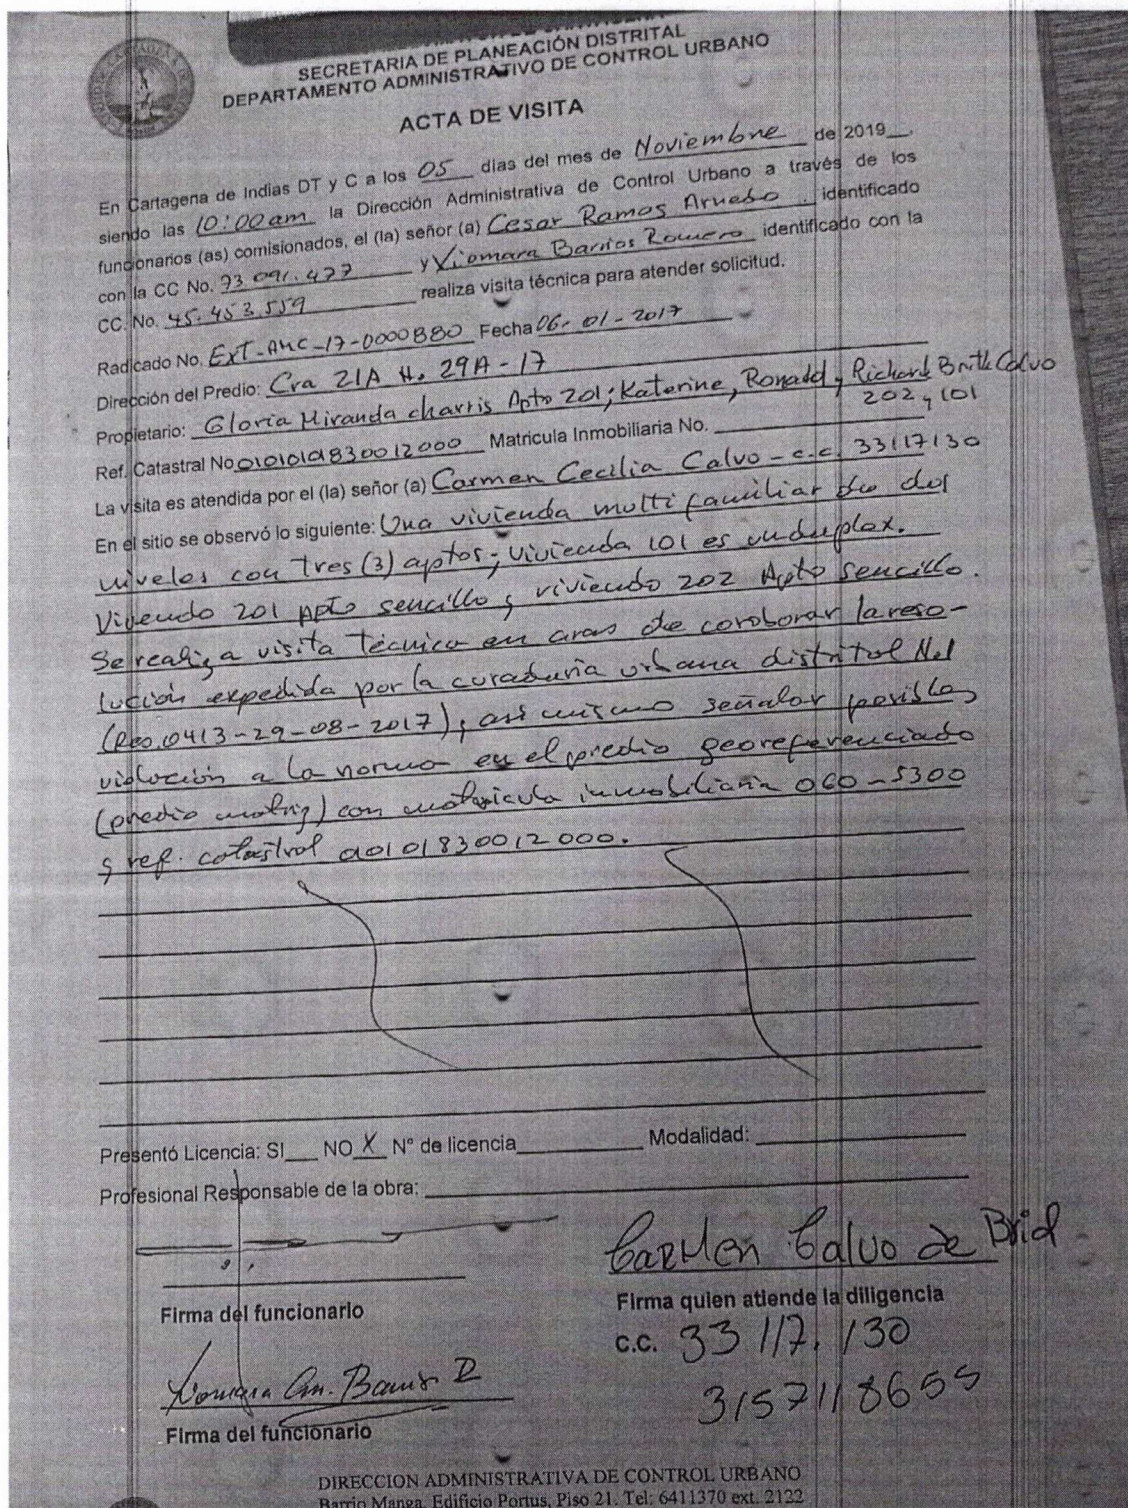 SECRETARIA DE PLANEACIÓN DISTRITAL
DEPARTAMENTO ADMINISTRATIVO DE CONTROL URBANO
ACTA DE VISITA
En Cartagena de Indias DT y C a los 05 días del mes de Noviembre de 2019__,
siendo las 10:00am la Dirección Administrativa de Control Urbano a través de los
funcionarios (as) comisionados, el (la) señor (a) Cesar Ramos Arnedo, identificado
con la CC No. 73 091.477 y Xiomara Barrios Romero identificado con la
CC. No. 45.453.559 realiza visita técnica para atender solicitud.
Radicado No. EXT-AMC-17-0000880 Fecha 06-01-2017
Dirección del Predio: Cra 21A H. 29A-17
Propietario: Gloria Miranda charris Apto 201; Katerine, Ronald y Richard Calvo
202 y 101
Ref. Catastral No 010101830012000 Matricula Inmobiliaria No.
La visita es atendida por el (la) señor (a) Carmen Cecilia Calvo - c.c. 33117130
En el sitio se observó lo siguiente: Una vivienda multifamiliar de dos
niveles con tres (3) aptos; vivienda 101 es un duplex.
Vivienda 201 Apto sencillo y vivienda 202 Apto sencillo.
Se realiza visita técnica en aras de coroborar la reso-
lución expedida por la curaduria urbana distrital N.1
(Reso.0413-29-08-2017), asi mismo señalar posibles
violación a la norma en el predio georeferenciado
(predio matriz) con matricula inmobiliaria 060-5300
y ref. catastral 00101830012000.
Presentó Licencia: SI___ NO X N° de licencia Modalidad:
Profesional Responsable de la obra:
Carmen Calvo de Brid
Firma del funcionario
Firma quien atiende la diligencia
c.c. 33 117. 130
3157118655
Firma del funcionario
DIRECCION ADMINISTRATIVA DE CONTROL URBANO
Barrio Manga, Edificio Portus, Piso 21. Tel: 6411370 ext. 2122